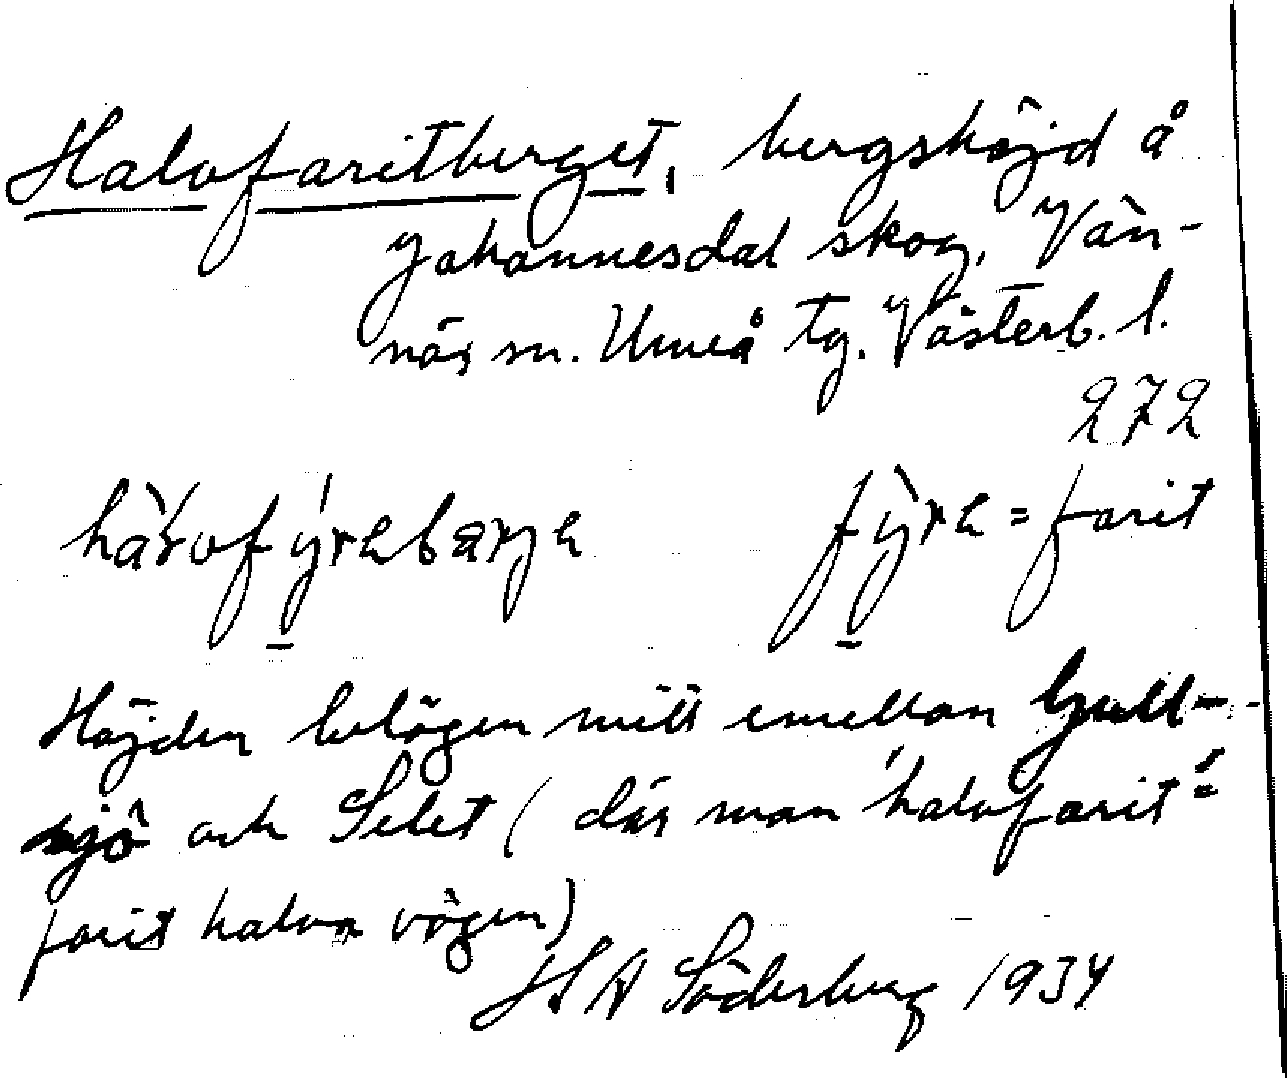 Halvfaritberget, bergshöjd å
Johannesdal skog, Vän-
näs sn. Umeå tg. Västerb. l.
272
fỳre = farit
Höjden belägen mitt emellan Gull-
sjö och Selet (där man 'halvfarit' =
farit halva vägen)
H A Söderberg 1934